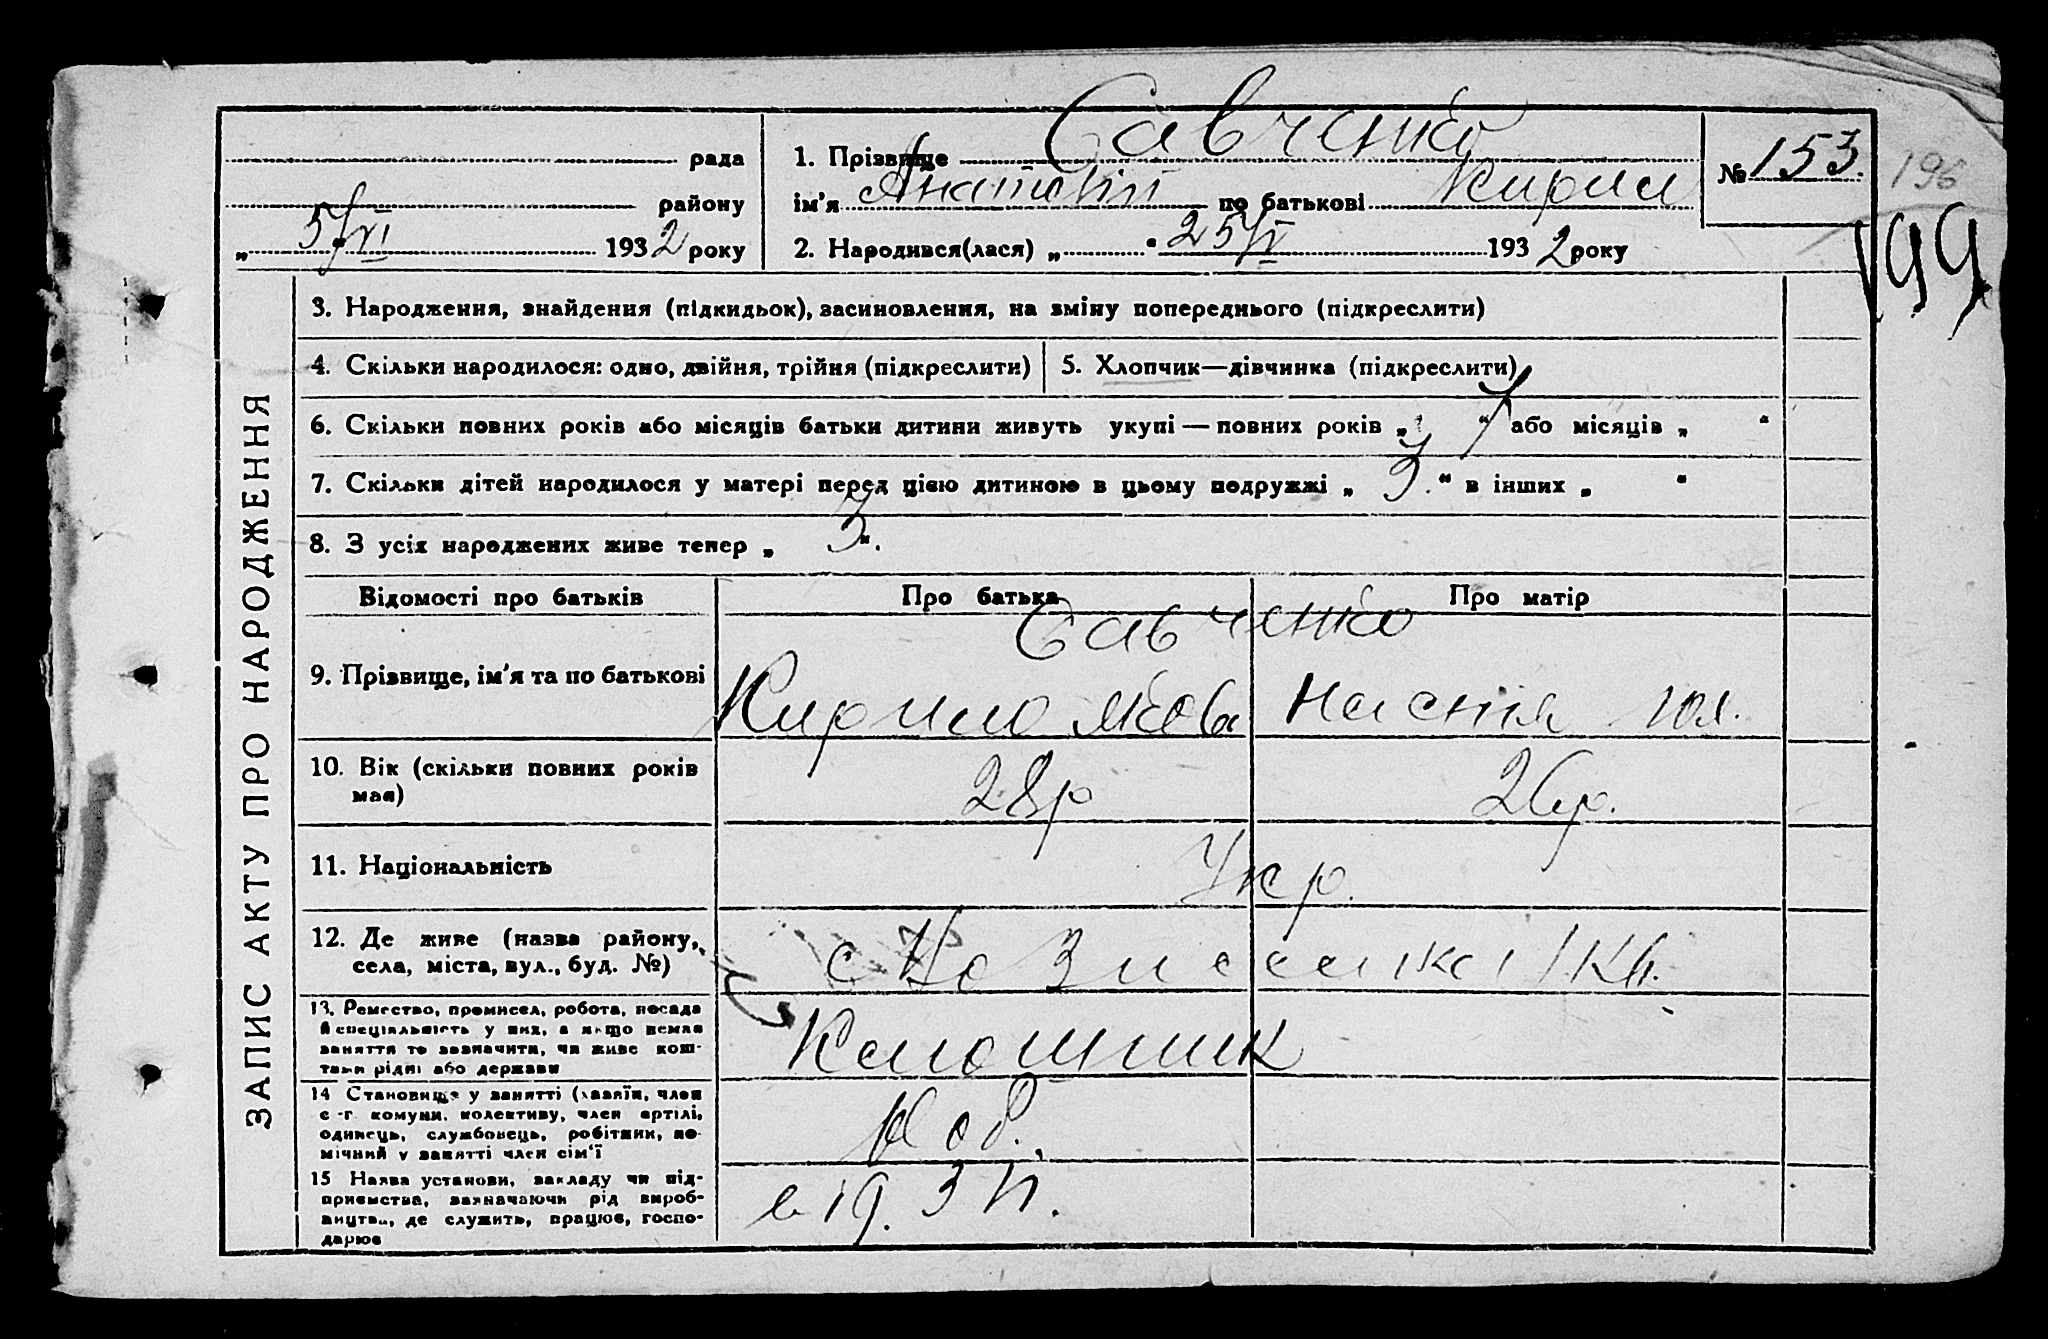 рада
району
„ 5/VI 1932 року
1. Прізвище Савченко
ім'я Анатолій по батькові Кирил
2. Народився(лася) „ " 25/V 1932 року
№ 153.
196
199
ЗАПИС АКТУ ПРО НАРОДЖЕННЯ
3. Народження, знайдення (підкидьок), засиновлення, на зміну попереднього (підкреслити)
4. Скільки народилося: одно, двійня, трійня (підкреслити)
5. Хлопчик—дівчинка (підкреслити)
6. Скільки повних років або місяців батьки дитини живуть укупі — повних років „ 7 " або місяців „ "
7. Скільки дітей народилося у матері перед цією дитиною в цьому подружжі „ 3. " в інших „ "
8. З усіх народжених живе тепер „ 3 ".
Відомості про батьків
Про батька
Про матір
Савченко
9. Прізвище, ім'я та по батькові
Кирило Яков
Настя
10. Вік (скільки повних років
має)
28р
26р.
11. Національність
Укр.
12. Де живе (назва району,
села, міста, вул., буд. №)
с
13. Ремество, промисел, робота, посада
й спеціяльність у них, а якщо немає
заняття то зазначити, чи живе кош-
тами рідні або держави
14 Становище у занятті (хазяїн, член
с.-г. комуни, колективу, член артілі,
одинець, службовець, робітник, по-
мічний у занятті член сім'ї
Роб.
15 Назва установи, закладу чи під-
приємства, зазначаючи рід вироб-
ництва, де служить, працює, госпо-
дарює